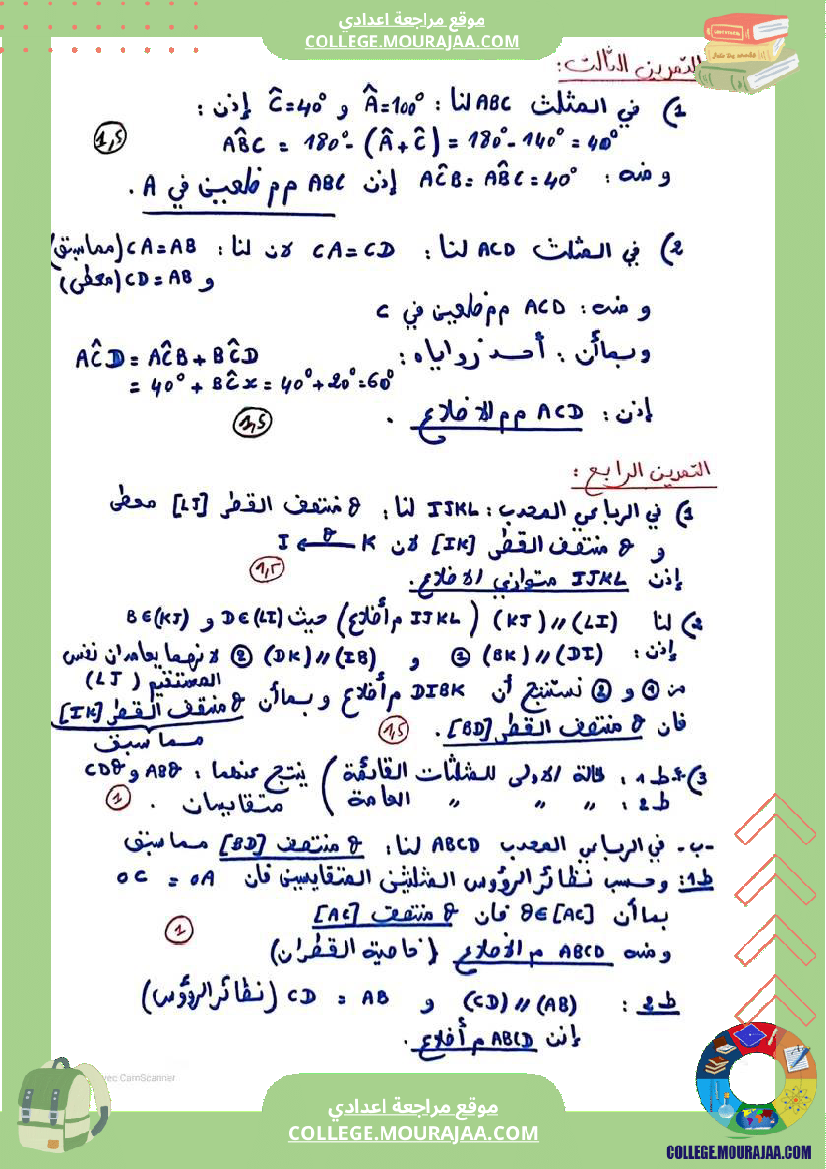 موقع مراجعة اعدادي
COLLEGE.MOURAJAA.COM
التمرين الثالث:
1) في المثلث ABC لنا: Â=100° و Ĉ=40° إذن:
AB̂C = 180° - (Â + Ĉ) = 180° - 140° = 40°
1,5
ومنه: AĈB = AB̂C = 40° إذن ABC مم ضلعين في A.
2) في المثلث ACD لنا: CA = CD لان لنا: CA = AB (مما سبق)
و CD = AB (معطى)
ومنه: ACD مم ضلعين في C
وبما أن: أحد زواياه: AĈD = AĈB + BĈD
= 40° + BĈx = 40° + 20° = 60°
إذن: ACD مم الاضلاع.
1,5
التمرين الرابع:
1) في الرباعي المحدب: IJKL لنا: O منتصف القطر [LJ] معطى
و O منتصف القطر [IK] لان I O K
إذن IJKL متوازي الاضلاع.
1,5
2) لنا (LI) // (KJ) (IJKL م أضلاع) حيث D∈(LI) و B∈(KJ)
إذن: (DI) // (BK) ① و (IB) // (DK) ② لانهما يعامدان نفس
المستقيم (LJ)
من ① و ② نستنتج أن DIBK م أضلاع وبما أن O منتصف القطر [IK]
مما سبق
فان O منتصف القطر [BD].
1,5
3) أ- ط1: حالة الاولى للمثلثات القائمة) ينتج عنهما: ABO و CDO
ط2: " " " العامة) متقايسان.
1
-ب- في الرباعي المحدب ABCD لنا: O منتصف [BD] مما سبق
ط1: وحسب نظائر الرؤوس المثلثين المتقايسين فان OC = OA
بما أن O∈[AC] فان O منتصف [AC]
1
ومنه ABCD م الأضلاع (خاصية القطران)
ط2: (AB) // (CD) و CD = AB (نظائر الرؤوس)
إذن ABCD م أضلاع.
vec CamScanner
موقع مراجعة اعدادي
COLLEGE.MOURAJAA.COM
COLLEGE.MOURAJAA.COM